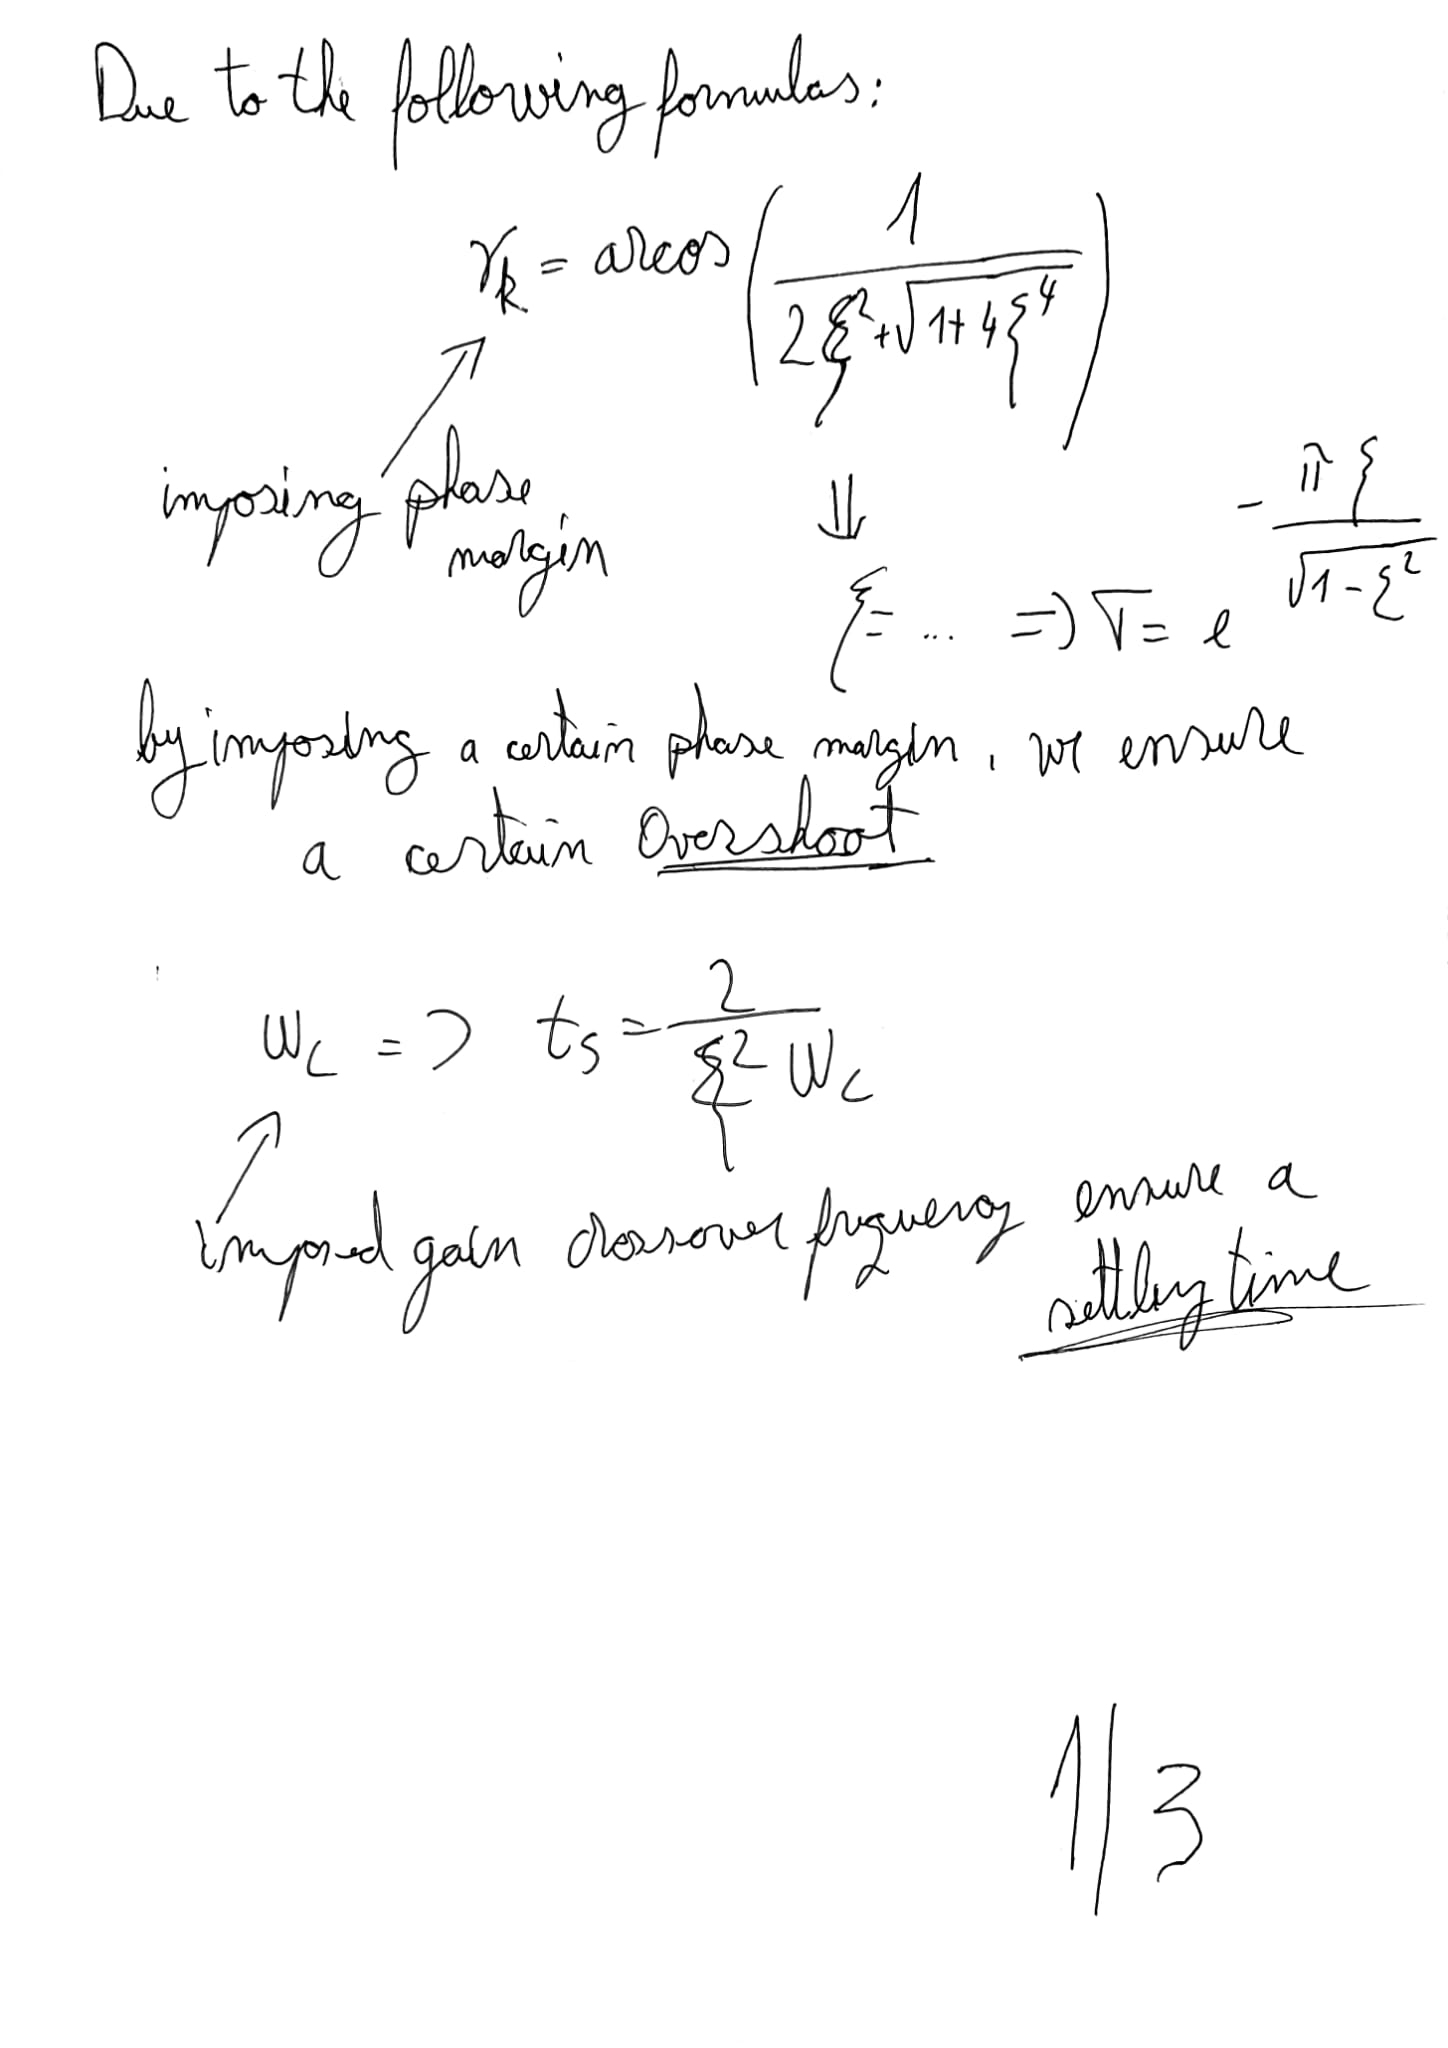 Due to the following formulas:
γk = arcos ( 1 / (2ξ² + √(1+4ξ⁴)) )
imposing phase margin
⇓
ξ = ... => σ = e^(-πξ / √(1-ξ²))
by imposing a certain phase margin, we ensure
a certain Overshoot
ωc => ts = 2 / (ξ² ωc)
imposed gain crossover frequency ensure a
settling time
1/3